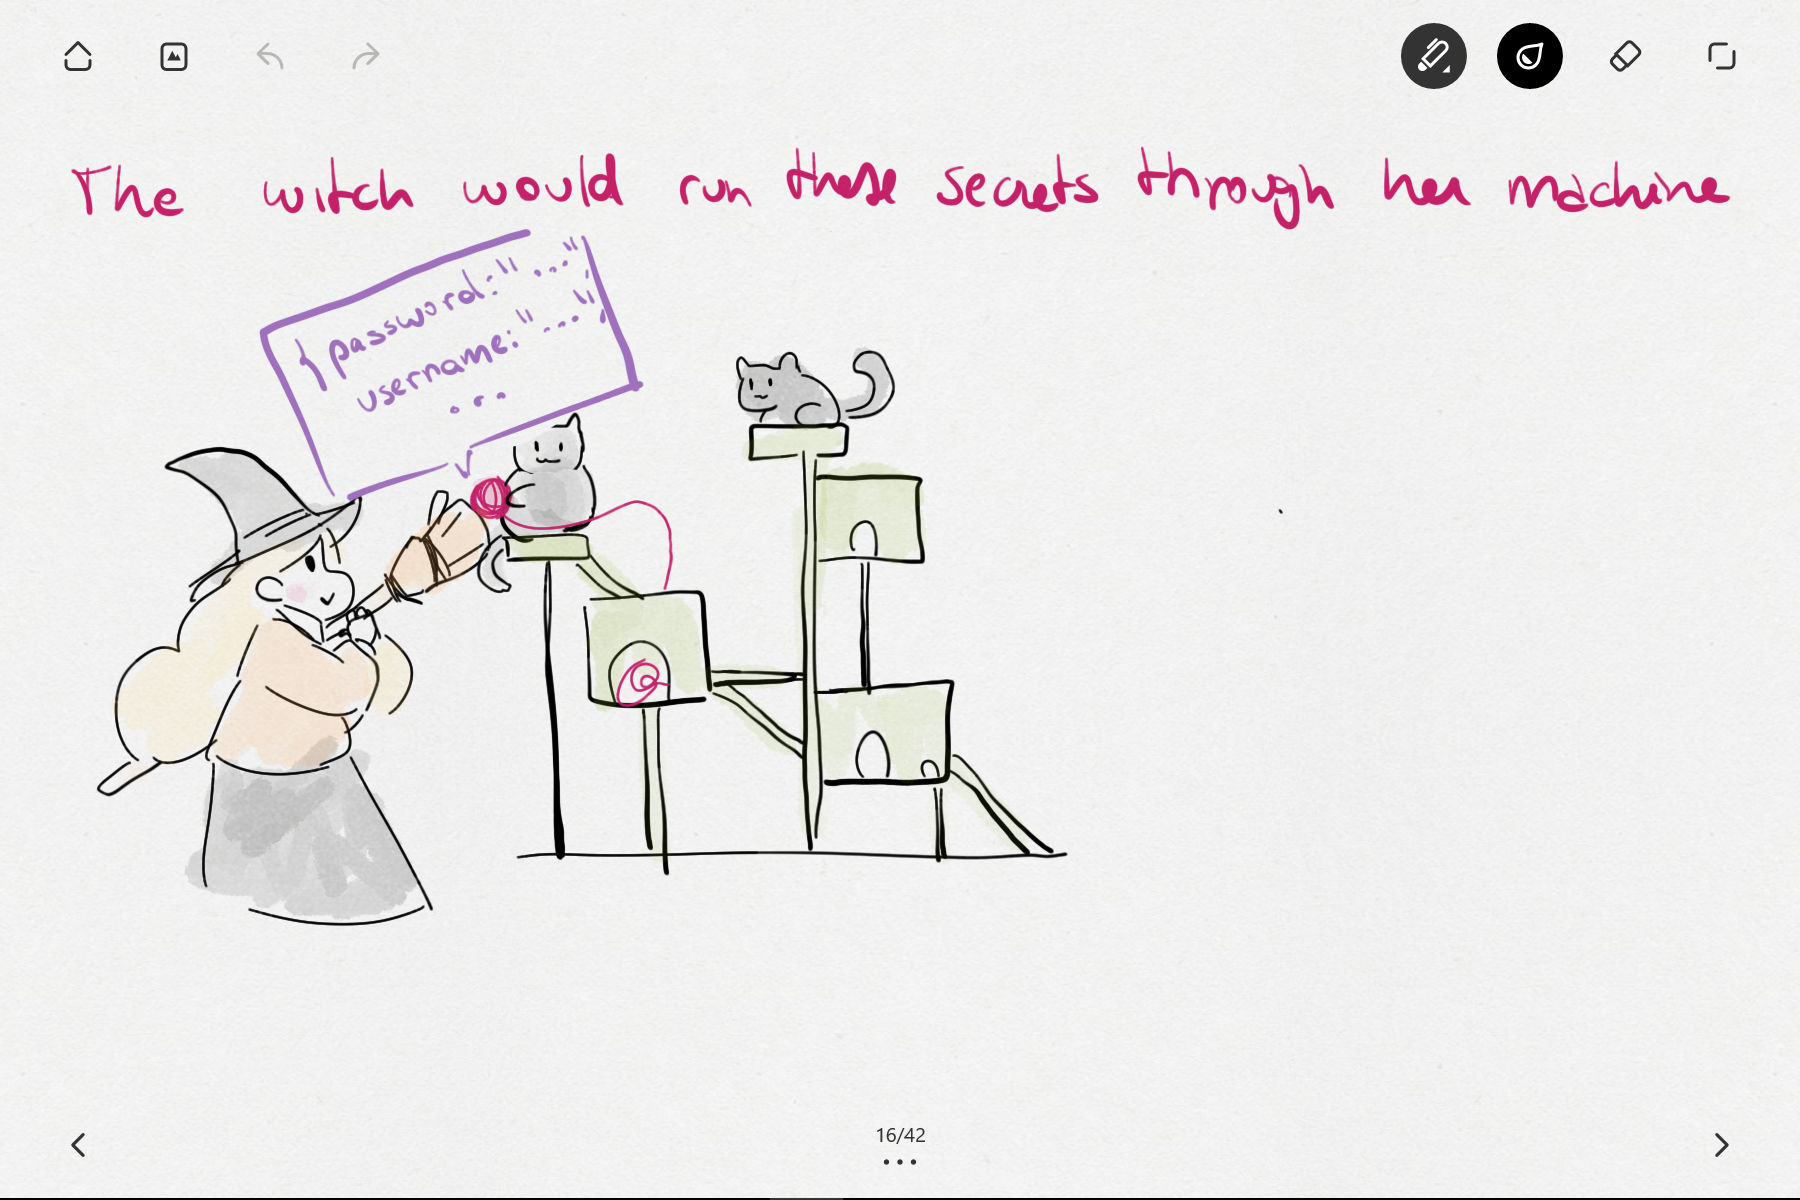 The witch would run these secrets through her machine
{ password: "...",
username: "...",
...
16/42